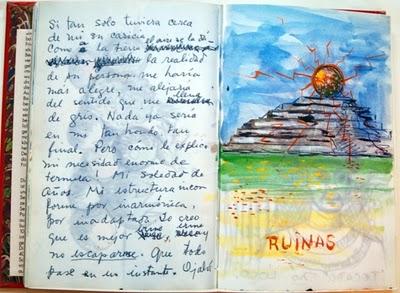 Si tan solo tuviera cerca
de mi su caricia
Como a la tierra el aire se la dá
la realidad
de su persona. me haría
más alegre, me alejaría
del sentido que me llena
de gris. Nada ya sería
en mi tan hondo, tan
final. Pero cómo le explico
mi necesidad enorme de
ternura! Mi soledad de
años. Mi estructura incon
forme por inarmónica,
por inadaptada. Yo creo
que es mejor irme, irme y
no escaparme. Que todo
pase en un instante. Ojalá
RUINAS